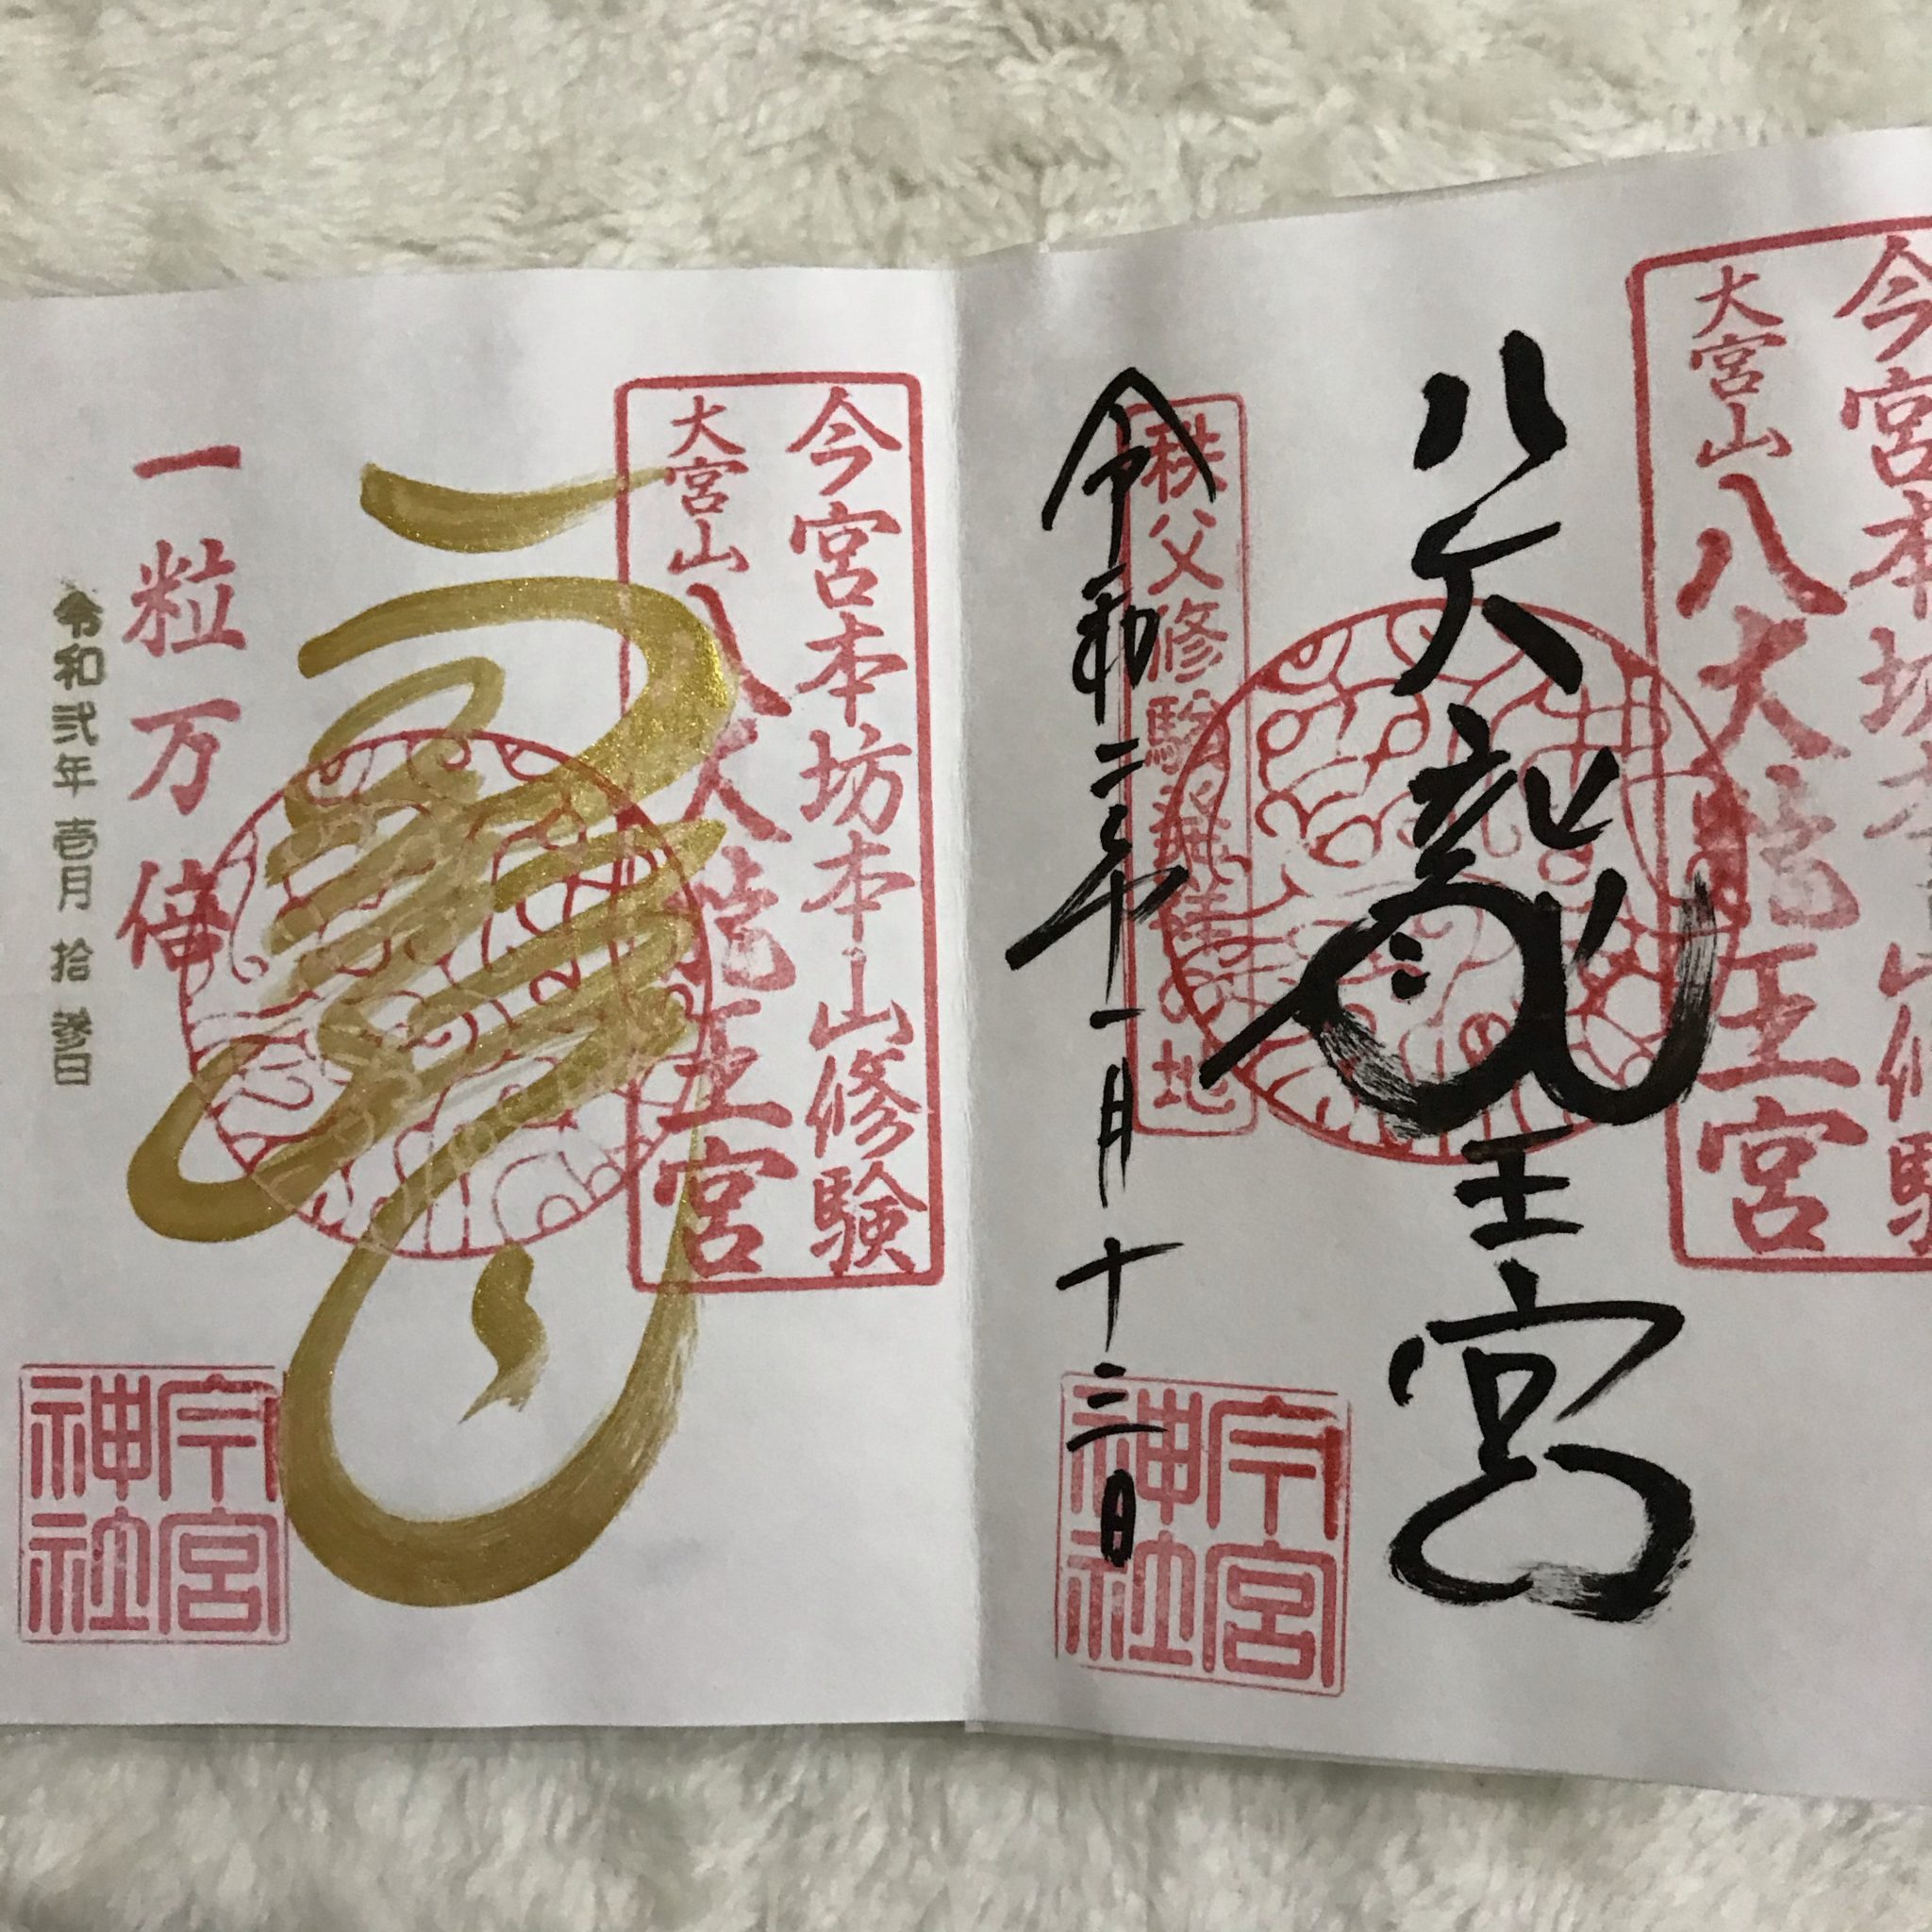 今宮本坊本山修験
大宮山八大龍王宮
八大龍王宮
秩父修験発祥の地
令和二年一月十三日
今宮神社
今宮本坊本山修験
大宮山八大龍王宮
一粒万倍
令和弐年壱月拾参日
今宮神社